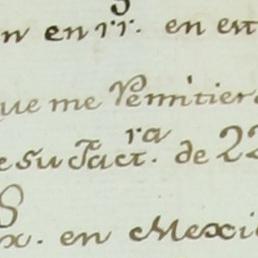 n en rr.ˢ en est
que me Remitier
e su Fact.ʳᵃ de 22
x.ˢ en Mexi